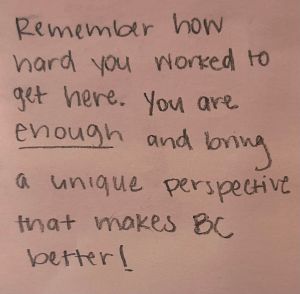 Remember how
hard you worked to
get here. You are
enough and bring
a unique perspective
that makes BC
better!